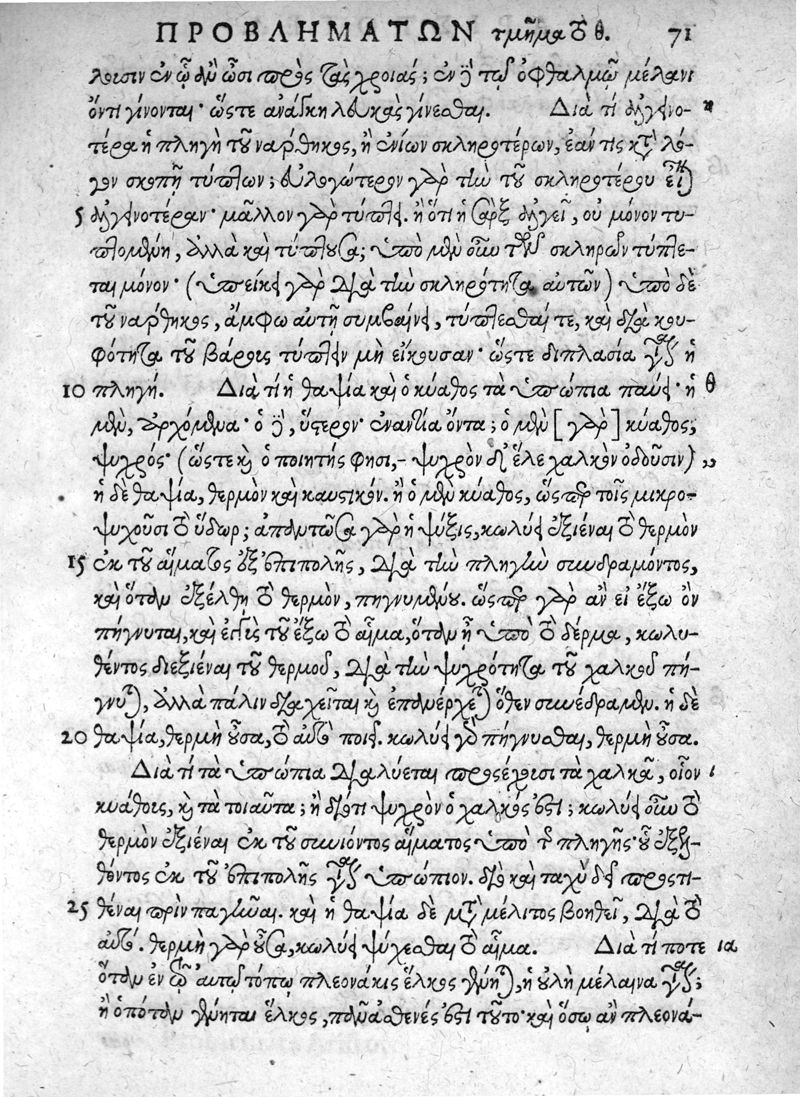 ΠΡΟΒΛΗΜΑΤΩΝ τμῆμα τὸ θ. 71
λουσιν ἐν ᾧ ἂν ὦσι πρὸς τὰς χροιάς; ἐν δὲ τῷ ὀφθαλμῷ μέλανι
ὄντι γίνονται· ὥστε ἀνάγκη λευκὰς γίνεσθαι. Διὰ τί ἀλγεινο- η
τέρα ἡ πληγὴ τοῦ νάρθηκος, ἢ ἐνίων σκληροτέρων, ἐάν τις κατὰ λό-
γον σκοπῇ τύπτων; εὐλογώτερον γὰρ τὴν τοῦ σκληροτέρου εἶναι
5 ἀλγεινοτέραν· μᾶλλον γὰρ τύπτει. ἢ ὅτι ἡ σὰρξ ἀλγεῖ, οὐ μόνον τυ-
πτομένη, ἀλλὰ καὶ τύπτουσα; ὑπὸ μὲν οὖν τῶν σκληρῶν τύπτε-
ται μόνον· (ὑπείκει γὰρ διὰ τὴν σκληρότητα αὐτῶν) ὑπὸ δὲ
τοῦ νάρθηκος, ἄμφω αὐτῇ συμβαίνει, τύπτεσθαί τε, καὶ διὰ κου-
φότητα τοῦ βάρους τύπτειν μὴ εἴκουσαν· ὥστε διπλασία γίνεται ἡ
10 πληγή. Διὰ τί ἡ θαψία καὶ ὁ κύαθος τὰ ὑπώπια παύει· ἡ θ
μὲν, ἀρχόμενα· ὁ δὲ, ὕστερον· ἐναντία ὄντα; ὁ μὲν [γὰρ] κύαθος,
ψυχρός· (ὥστε καὶ ὁ ποιητής φησι,- ψυχρὸν δ' ἕλε χαλκὸν ὀδοῦσιν) „
ἡ δὲ θαψία, θερμὸν καὶ καυστικόν. ἢ ὁ μὲν κύαθος, ὥσπερ τοῖς μικρο-
ψυχοῦσι τὸ ὕδωρ; ἀπαντῶσα γὰρ ἡ ψύξις, κωλύει ἐξιέναι τὸ θερμὸν
15 ἐκ τοῦ αἵματος ἐξ ἐπιπολῆς, διὰ τὴν πληγὴν συνδραμόντος,
καὶ ὅταν ἐξέλθῃ τὸ θερμὸν, πηγνυμένου. ὥσπερ γὰρ ἂν εἰ ἔξω ὂν
πήγνυται, καὶ ἐντὸς τοῦ ἔξω τὸ αἷμα, ὅταν ᾖ ὑπὸ τὸ δέρμα, κωλυ-
θέντος διεξιέναι τοῦ θερμοῦ, διὰ τὴν ψυχρότητα τοῦ χαλκοῦ πή-
γνυται, ἀλλὰ πάλιν διαχεῖται καὶ ἐπανέρχεται ὅθεν συνέδραμεν. ἡ δὲ
20 θαψία, θερμὴ οὖσα, τὸ αὐτὸ ποιεῖ. κωλύει γὰρ πήγνυσθαι, θερμὴ οὖσα.
Διὰ τί τὰ ὑπώπια διαλύεται προσέχουσι τὰ χαλκᾶ, οἷον ι
κυάθοις, καὶ τὰ τοιαῦτα; ἢ διότι ψυχρὸν ὁ χαλκός ἐστι; κωλύει οὖν τὸ
θερμὸν ἐξιέναι ἐκ τοῦ συνιόντος αἵματος ὑπὸ τῆς πληγῆς· οὗ ἐξελ-
θόντος ἐκ τοῦ ἐπιπολῆς γίνεται ὑπώπιον. διὸ καὶ ταχὺ δεῖ προστι-
25 θέναι πρὶν παγῆναι. καὶ ἡ θαψία δὲ μετὰ μέλιτος βοηθεῖ, διὰ τὸ
αὐτό. θερμὴ γὰρ οὖσα, κωλύει ψύχεσθαι τὸ αἷμα. Διὰ τί ποτε ια
ὅταν ἐν τῷ αὐτῷ τόπῳ πλεονάκις ἕλκος γένηται, ἡ οὐλὴ μέλαινα γίνεται;
ἢ ὁπόταν γένηται ἕλκος, παρασθενές ἐστι τοῦτο· καὶ ὅσῳ ἂν πλεονά-